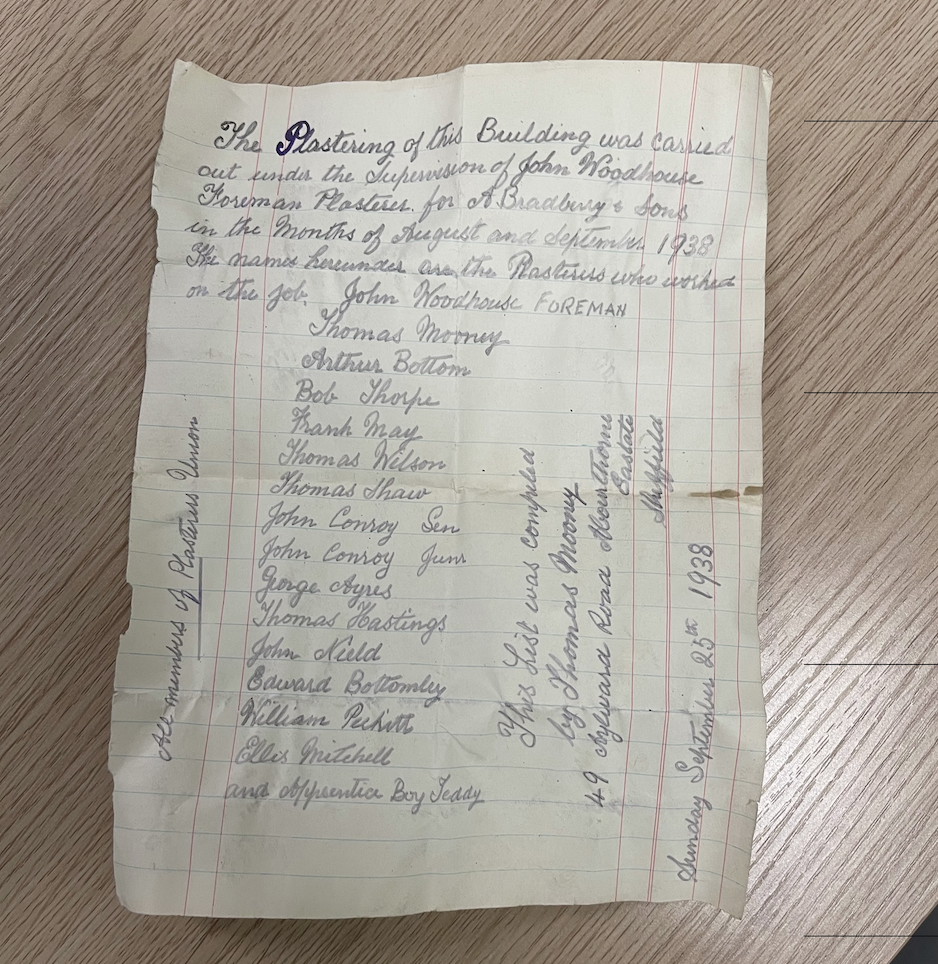 The Plastering of this Building was carried
out under the Supervision of John Woodhouse
Foreman Plasterer. for A. Bradbury & Sons
in the Months of August and September 1938
The names hereunder are the Plasterers who worked
on the job. John Woodhouse FOREMAN
Thomas Mooney
Arthur Bottom
Bob Thorpe
Frank May
Thomas Wilson
Thomas Shaw
John Conroy Sen
John Conroy Junr
George Ayres
Thomas Hastings
John Nield
Edward Bottomley
William Peckitt
Ellis Mitchell
and Apprentice Boy Teddy
All members of Plasterers Union
This List was compiled
by Thomas Mooney
49 Aylward Road Arbourthorne
Eastate
Sheffield
Sunday September 25th 1938